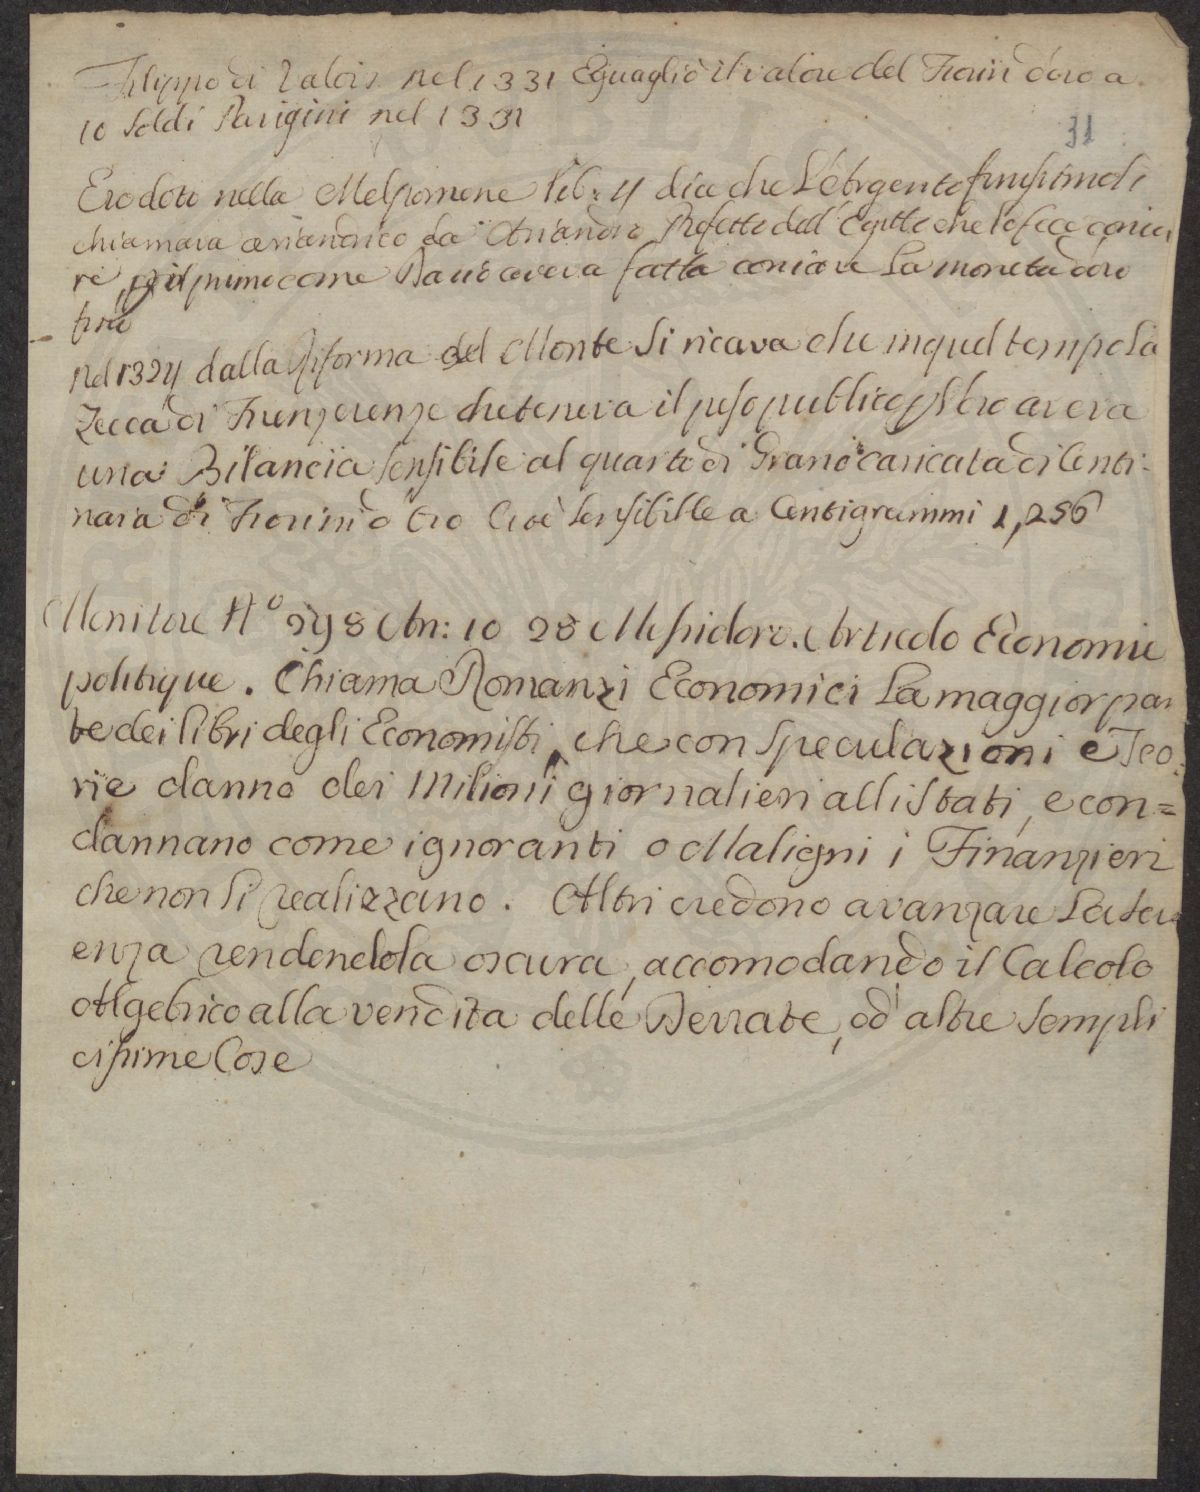 Filippo di Valois nel 1331 Eguagliò il valore del Fiorin d'oro a
10 Soldi Parigini nel 1331
31
Erodoto nella Melpomene lib: 4 dice che L'Argento finissimo si
chiamava ariandrico da Ariandro Prefetto dell' Egitto che lo fece conia
re, pel primo come Dario aveva fatta coniare La moneta d'oro
fino
Nel 1324 dalla Riforma del Monte Si ricava che in quel tempo La
Zecca di che teneva il peso pubblico aveva
una Bilancia Sensibile al quarto di Grano caricata di Centi-
naia di Fiorini d'Oro Cioè Sensibille a Centigrammi 1,256
Monitore N.o 298 An: 10 28 Messidoro. Articolo Economie
politique. Chiama Romanzi Economici La maggior par
te dei libri degli Economisti, che con Speculazioni e Teo
rie danno dei Milioni giornalieri alli Stati, e con=
dannano come ignoranti o Maligni i Finanzieri
che non li realizzano. Altri credono avanzare La Sci
enza rendendola oscura, accomodando il Calcolo
Algebrico alla vendita delle Derrate, od altre Sempli
cissime Cose